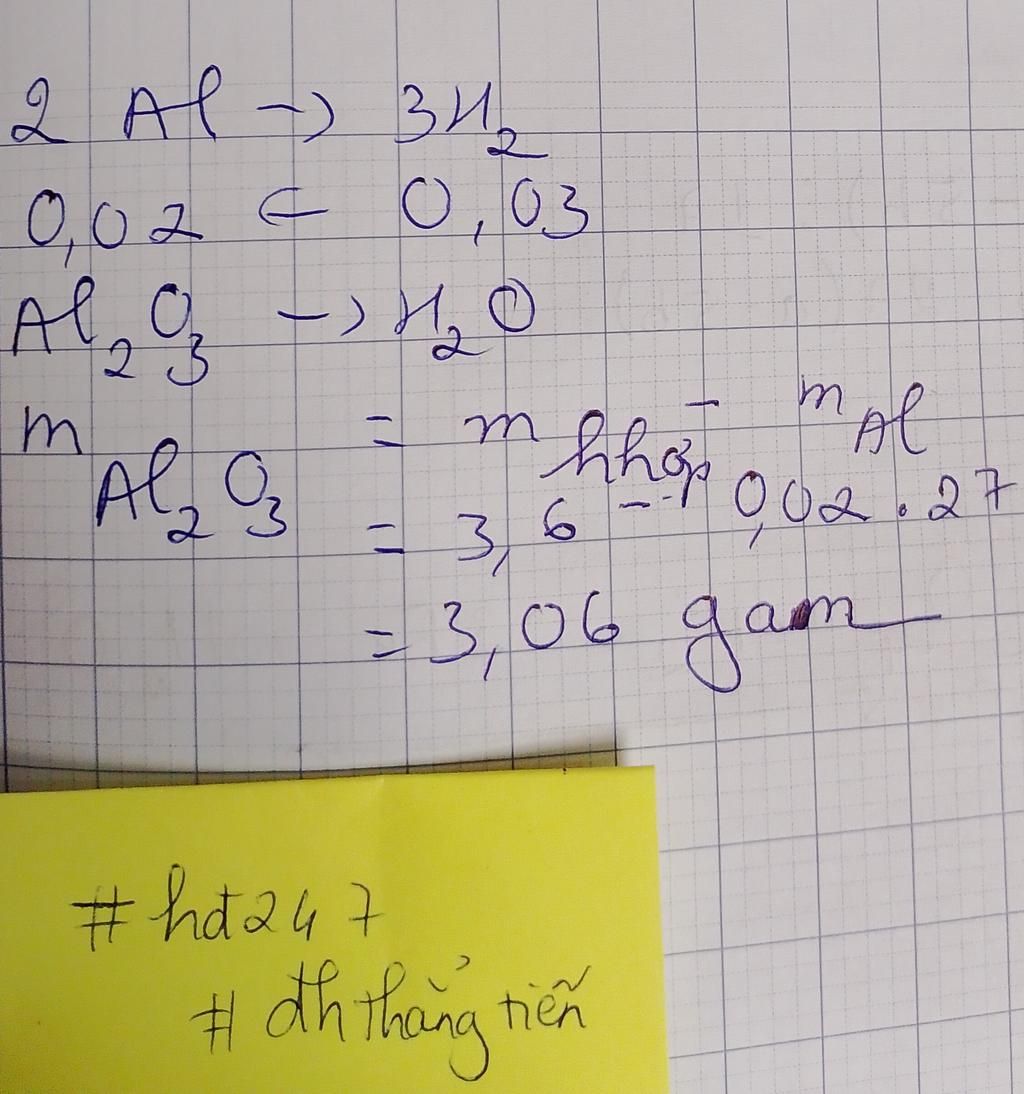 2 Al → 3H₂
0,02 ← 0,03
Al₂O₃ → H₂O
m Al₂O₃ = m hhợp - m Al
= 3,6 - 0,02 . 27
= 3,06 gam
#hđ247
#đhthẳngtiến